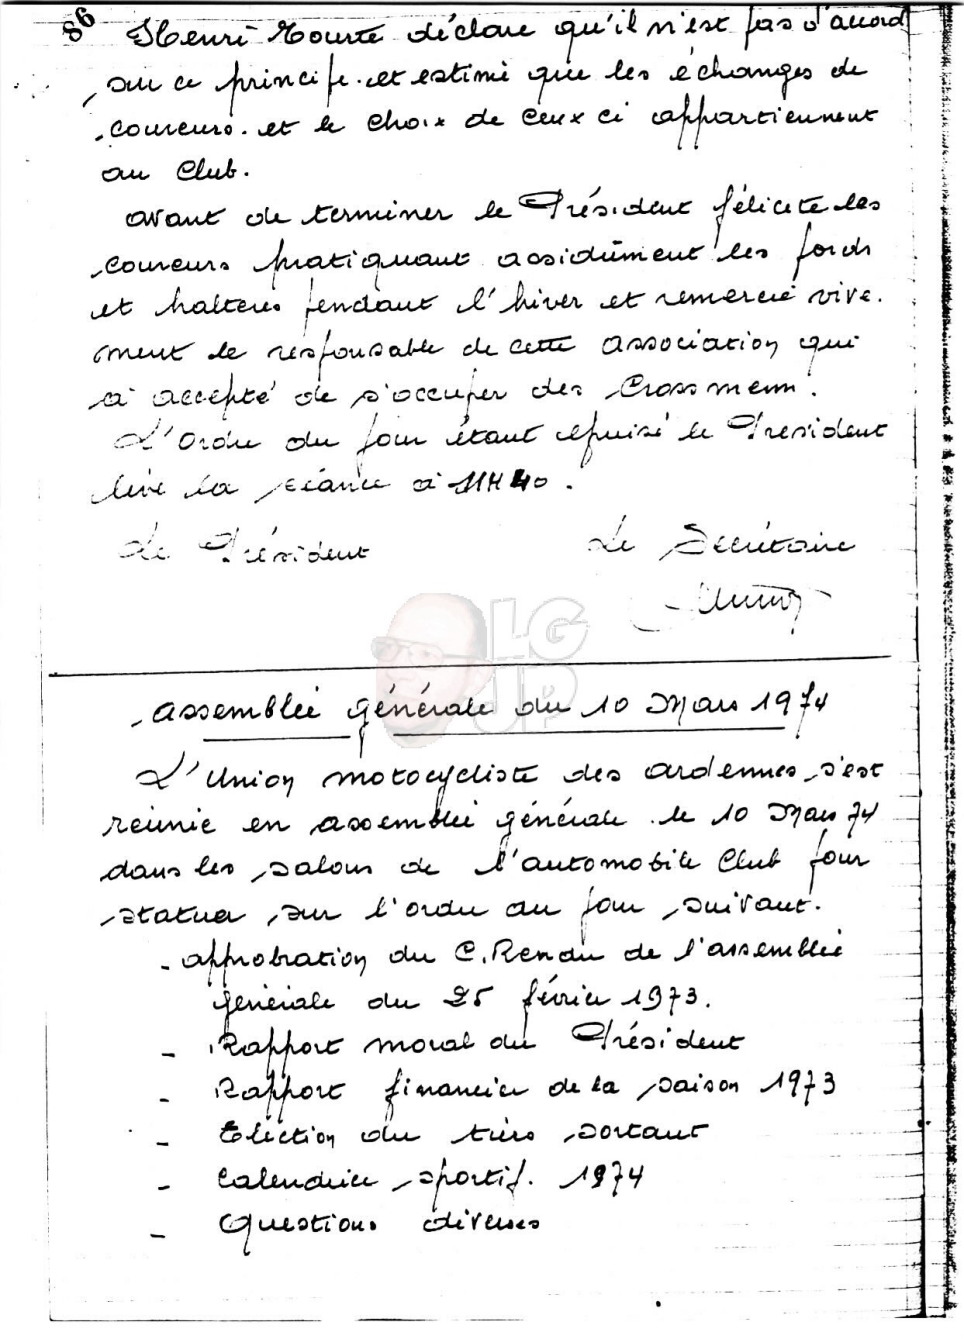 86
Henri Tourte déclare qu'il n'est pas d'accord
sur ce principe. et estime que les échanges de
coureurs. et le choix de ceux ci appartiennent
au Club.
avant de terminer le Président félicite les
coureurs pratiquant assidûment les poids
et haltères pendant l'hiver et remercie vive.
ment le responsable de cette association qui
a accepté de s'occuper des Crossmenn.
L'ordre du jour étant épuisé le Président
lève la séance à 11H40.
Le Président Le Secrétaire
LG
JP
assemblée générale du 10 Mars 1974
L'Union motocycliste des ardennes s'est
réunie en assemblée générale le 10 Mars 74
dans les salons de l'automobile Club pour
statuer sur l'ordre du jour suivant.
- approbation du C. Rendu de l'assemblée
générale du 25 février 1973.
- Rapport moral du Président
- Rapport financier de la saison 1973
- Election du tiers sortant
- Calendrier sportif. 1974
- Questions diverses